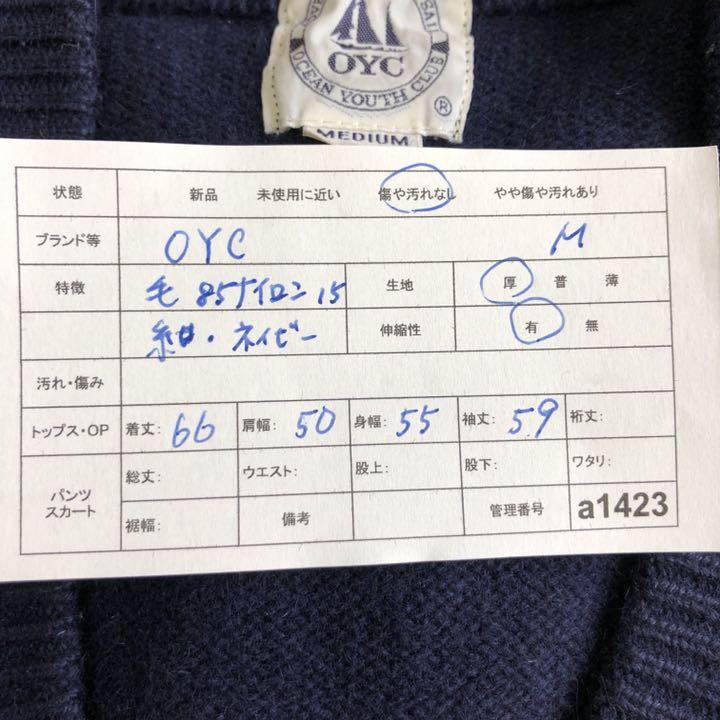 OYC
OCEAN YOUTH CLUB
®
MEDIUM
状態 新品 未使用に近い 傷や汚れなし やや傷や汚れあり
ブランド等 OYC M
特徴 毛 85ナイロン15 生地 厚 普 薄
紺・ネイビー 伸縮性 有 無
汚れ・傷み
トップス・OP 着丈: 66 肩幅: 50 身幅: 55 袖丈: 59 裄丈:
パンツ スカート 総丈: ウエスト: 股上: 股下: ワタリ:
裾幅: 備考 管理番号 a1423